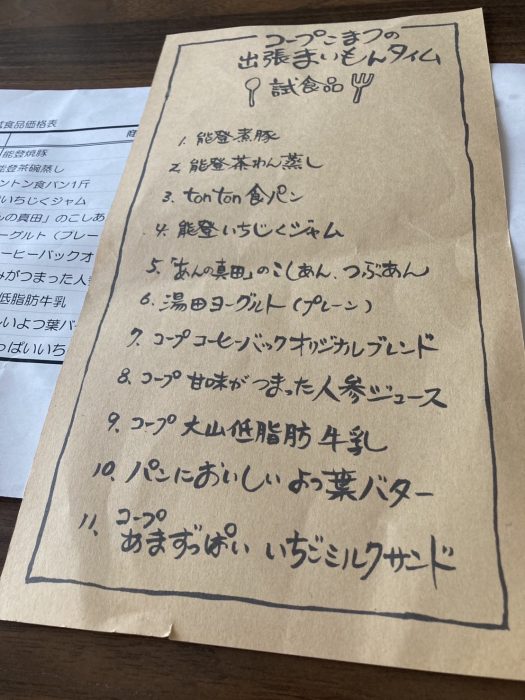 コープこまつの
出張まいもんタイム
試食品
1. 能登煮豚
2. 能登茶わん蒸し
3. tonton食パン
4. 能登いちじくジャム
5. 「あんの真田」のこしあん、つぶあん
6. 湯田ヨーグルト(プレーン)
7. コープコーヒーバックオリジナルブレンド
8. コープ 甘味がつまった人参ジュース
9. コープ 大山低脂肪牛乳
10. パンにおいしいよつ葉バター
11. コープ
あまずっぱい いちごミルクサンド
試食品価格表
商
能登焼豚
能登茶碗蒸し
ントン食パン1斤
いちじくジャム
んの真田」のこしあ
ーグルト(プレー
コーヒーバックオ
みがつまった人参
低脂肪牛乳
しいよつ葉バ
っぱいいち